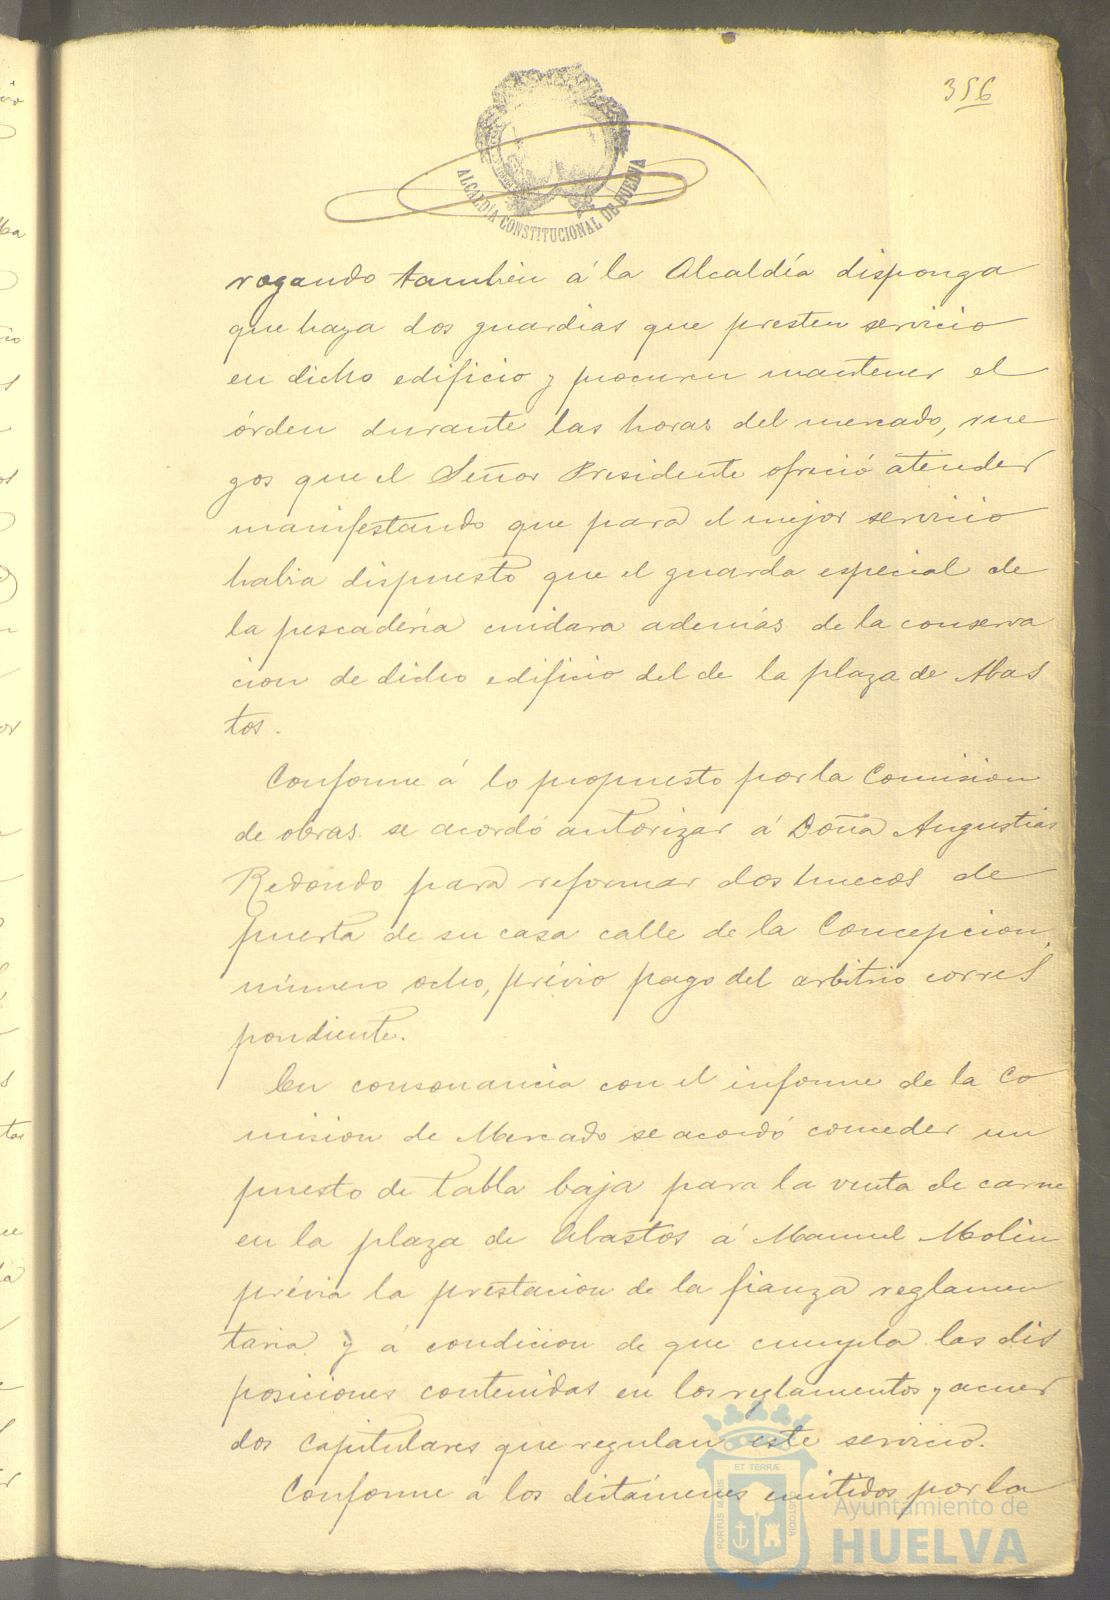 356
ALCALDÍA CONSTITUCIONAL DE HUELVA
rogando tambien á la Alcaldía disponga
que haya dos guardias que presten servicio
en dicho edificio y procuren mantener el
órden durante las horas del mercado, rue
gos que el Señor Presidente ofreció atender
manifestando que para el mejor servicio
habia dispuesto que el guarda especial de
la pescadería cuidara además de la conserva
cion de dicho edificio del de la plaza de Abas
tos.
Conforme á lo propuesto por la Comision
de obras se acordó autorizar á Doña Angustias
Redondo para reformar dos huecos de
puerta de su casa calle de la Concepcion,
número ocho, prévio pago del arbitrio corres
pondiente.
En consonancia con el informe de la Co
mision de Mercado se acordó conceder un
puesto de tabla baja para la venta de carne
en la plaza de Abastos á Manuel Molin
prévia la prestacion de la fianza reglamen
taria y á condicion de que cumpla las dis
posiciones contenidas en los reglamentos y acuer
dos Capitulares que regulan este servicio.
Conforme á los dictámenes emitidos por la
PORTUS MARIS ET TERRÆ CUSTODIA
Ayuntamiento de
HUELVA